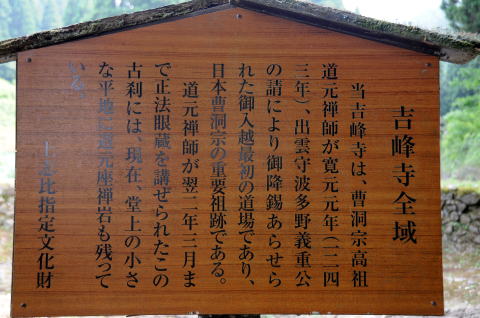 吉峰寺全域
当吉峰寺は、曹洞宗高祖
道元禅師が寛元元年(一二四
三年)、出雲守波多野義重公
の請により御降錫あらせら
れた御入越最初の道場であり、
日本曹洞宗の重要祖跡である。
道元禅師が翌二年三月ま
で正法眼蔵を講ぜられたこの
古刹には、現在、堂上の小さ
な平地に道元座禅岩も残って
いる。
上志比指定文化財